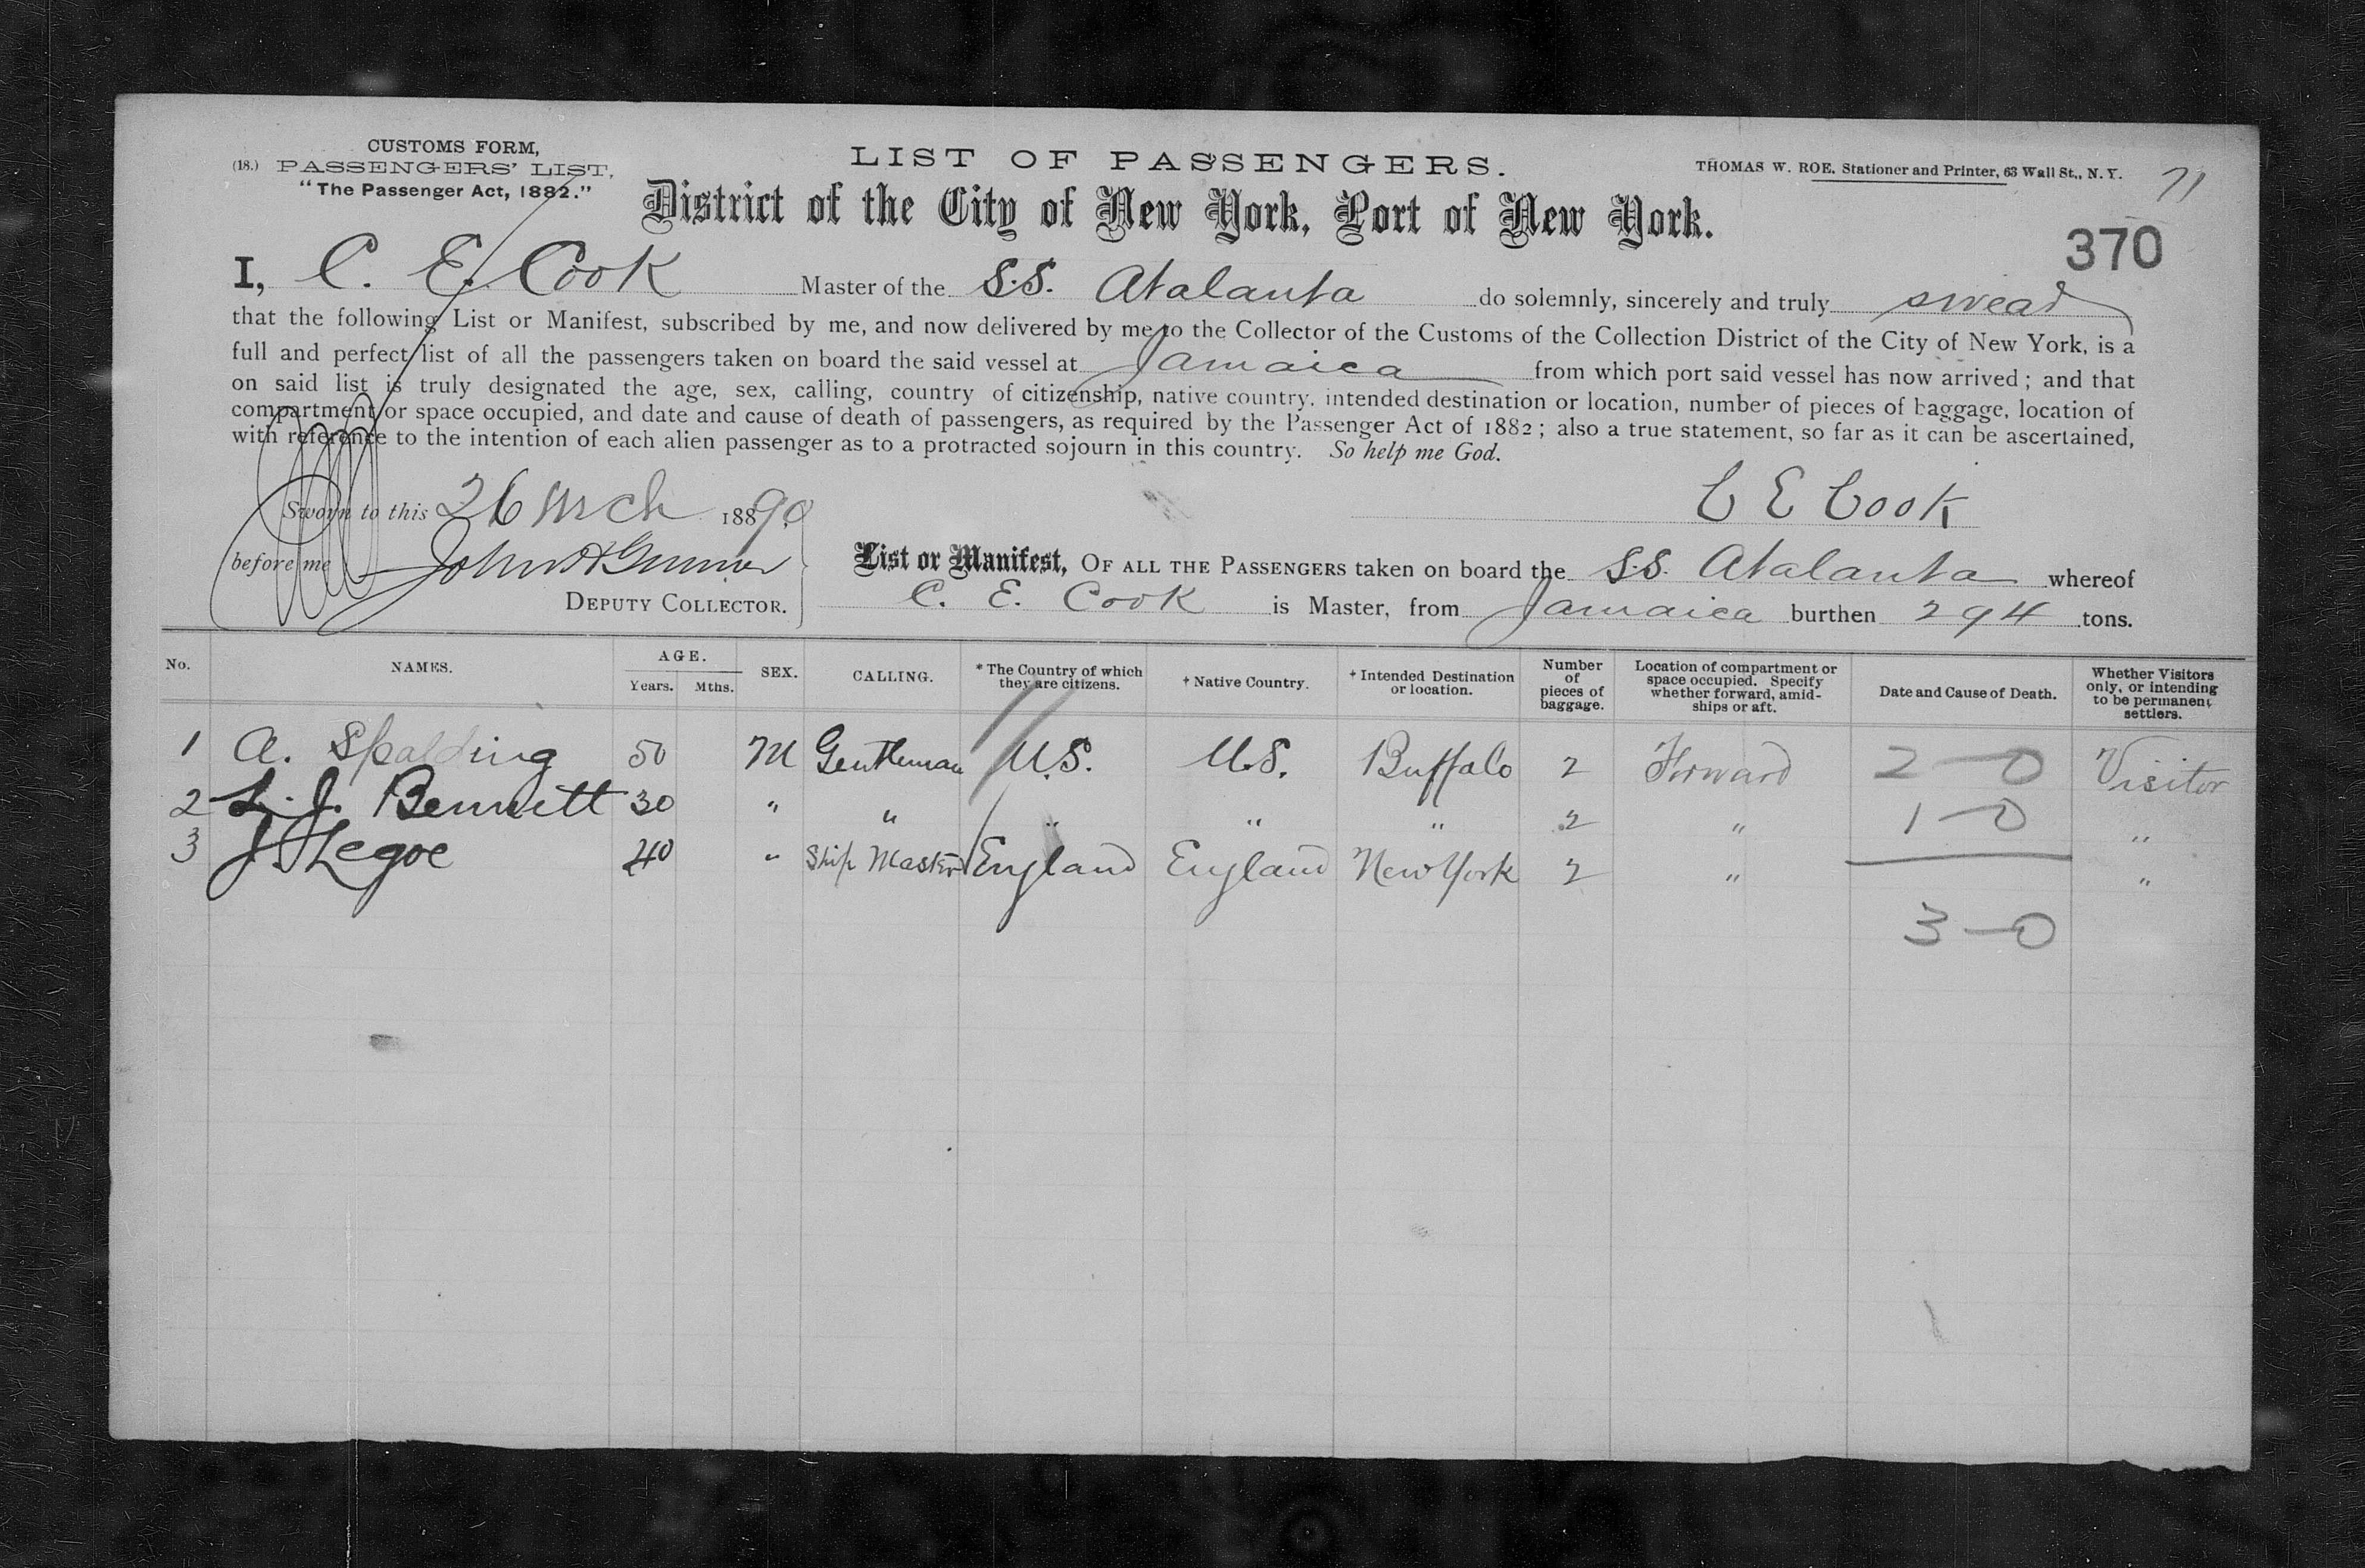 CUSTOMS FORM,
(18.) PASSENGERS' LIST,
"The Passenger Act, 1882."
LIST OF PASSENGERS.
THOMAS W. ROE, Stationer and Printer, 63 Wall St., N. Y.
71
District of the City of New York, Port of New York.
370
I, C. E. Cook Master of the S.S. Atalanta do solemnly, sincerely and truly swear
that the following List or Manifest, subscribed by me, and now delivered by me to the Collector of the Customs of the Collection District of the City of New York, is a
full and perfect list of all the passengers taken on board the said vessel at Jamaica from which port said vessel has now arrived; and that
on said list is truly designated the age, sex, calling, country of citizenship, native country, intended destination or location, number of pieces of baggage, location of
compartment or space occupied, and date and cause of death of passengers, as required by the Passenger Act of 1882; also a true statement, so far as it can be ascertained,
with reference to the intention of each alien passenger as to a protracted sojourn in this country. So help me God.
C E Cook
Sworn to this 26 Mch 1889,0
before me John A
DEPUTY COLLECTOR.
List or Manifest, OF ALL THE PASSENGERS taken on board the S.S. Atalanta whereof
C. E. Cook is Master, from Jamaica burthen 294 tons.
No. NAMES. AGE. Years. Mths. SEX. CALLING. * The Country of which they are citizens. † Native Country. † Intended Destination or location. Number of pieces of baggage. Location of compartment or space occupied. Specify whether forward, amidships or aft. Date and Cause of Death. Whether Visitors only, or intending to be permanent settlers.
1 A. Spalding 50 M Gentleman U.S. U.S. Buffalo 2 Forward 2-0 Visitor
2 L. J. Bennett 30 " " " " " 2 " 1-0 "
3 J. Legoe 40 " Ship Master England England New York 2 " "
3-0